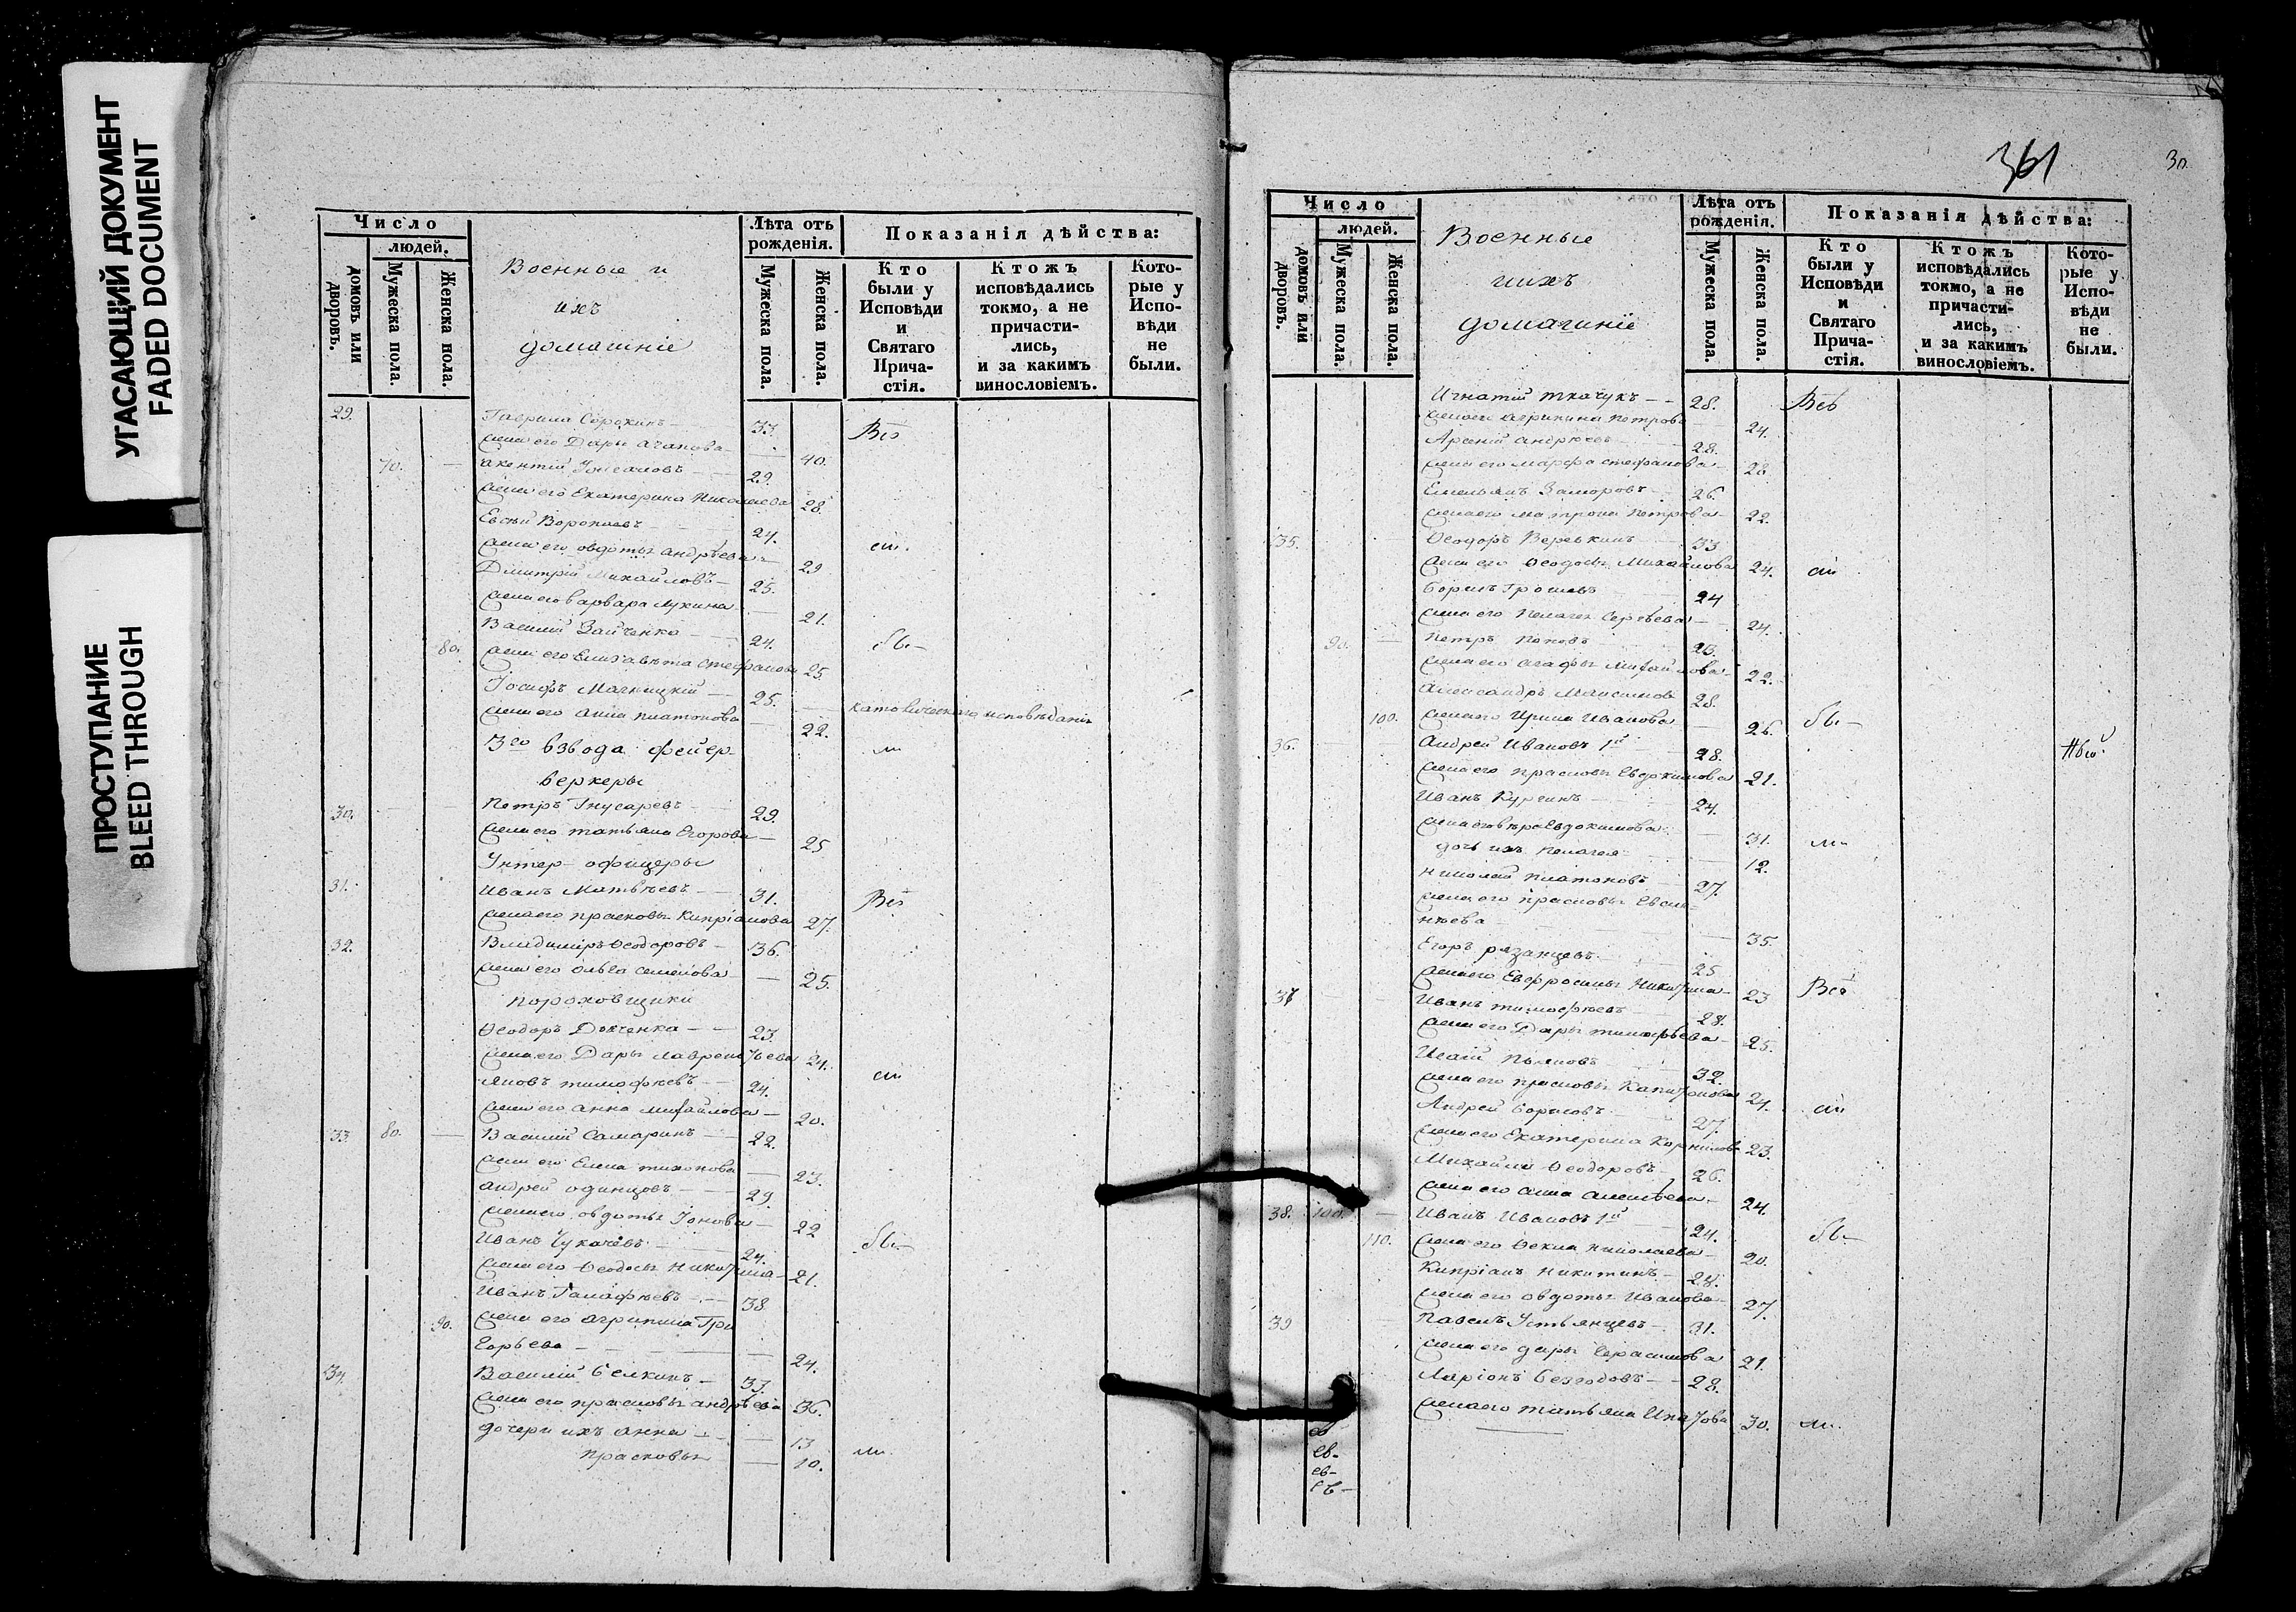 УГАСАЮЩИЙ ДОКУМЕНТ
FADED DOCUMENT
ПРОСТУПАНИЕ
BLEED THROUGH
Число
людей.
домовъ или дворовъ.
Мужеска пола.
Женска пола.
Военные и
ихъ
домашніе
Лѣта отъ рожденія.
Мужеска пола.
Женска пола.
Показанія дѣйства:
Кто были у Исповѣди и Святаго Прича-стія.
Ктожъ исповѣдались токмо, а не причасти-лись, и за какимъ винословіемъ.
Кото-рые у Испо-вѣди не были.
29. Гаврила Сорокинъ 33. Всѣ
жена его Дарья 40.
70. 29.
жена его Екатерина Николаева 28.
Евсѣй 24.
жена его Овдотья Андрѣева 29
Дмитрій Михайловъ 25.
жена его Варвара Лукина 21.
Василій Зайченко 24.
80. жена его Елизавѣта Стефанова 25
Іосифъ Магницкій 25. католическаго исповѣданія
жена его Анна Платонова 22.
3го взвода фейер-
веркеры
30. Петръ Гнусаревъ 29.
жена его Татьяна Егорова 25
Унтер-офицеры
31. Иванъ Матвѣевъ 31. Всѣ
жена его Прасковья Кипріанова 27.
32. Владиміръ Ѳеодоровъ 36.
жена его Ольга Семенова 25.
Пороховщики
Ѳеодоръ 23.
жена его Дарья Лаврентьева 24.
Яковъ Тимофѣевъ 24.
жена его Анна Михайлова 20.
33. 80. Василій Самаринъ 22.
жена его Елена Тихонова 23.
Андрей Одинцовъ 29.
жена его Овдотья Іонова 22
Иванъ Чукачевъ 24.
жена его Ѳеодосья Никитина 21.
Иванъ 38.
90. жена его Агрипина Гри
горьева 24.
34. Василій Белкинъ 37.
жена его Прасковья Андрѣева 36.
дочери ихъ Анна 13
Прасковья 10.
361
30.
Число
людей.
домовъ или дворовъ.
Мужеска пола.
Женска пола.
Военные
и ихъ
домашніе
Лѣта отъ рожденія.
Мужеска пола.
Женска пола.
Показанія дѣйства:
Кто были у Исповѣди и Святаго Прича-стія.
Ктожъ исповѣдались токмо, а не причасти-лись, и за какимъ винословіемъ.
Кото-рые у Испо-вѣди не были.
Игнатій Ткачукъ 28. Всѣ
жена его Агрипина Петрова 24.
Арсеній 28.
жена его Марфа Стефанова 28
Емельянъ Заморовъ 26.
жена его Матрона Петрова 22.
35. Ѳеодоръ Веревкинъ 33
жена его Ѳеодосья Михайлова 24.
Борисъ 24
жена его Пелагея Сергѣева 24.
90. Петръ Поповъ 23.
жена его Агафья Михайлова 22.
Александръ Максимовъ 28.
100. жена его Ирина Иванова 26.
36. Андрей Ивановъ 1й 28.
жена его Прасковья Евдокимова 21.
Иванъ Кургинъ 24.
жена его Евдокимова 31.
дочь ихъ Пелагея 12.
Николай Платоновъ 27.
жена его Прасковья
нѣева 35.
Егоръ Рязанцевъ 25
жена его Евфросинья Никитина 23 Всѣ
37 Иванъ Тимофѣевъ 28.
жена его Дарья Тимофѣева 25.
32.
жена его Прасковья Капитонова 24.
Андрей Борисовъ 27.
жена его Екатерина Корнилова 23.
Михаилъ Ѳеодоровъ 26.
жена его Анна Алексѣева 24.
38. 100. Иванъ Ивановъ 1й 24.
110. жена его Ѳекла Николаева 20.
Кипріанъ Никитинъ 28.
жена его Овдотья Иванова 27.
39 Павелъ Устьянцевъ 31.
жена его Дарья Герасимова 21.
Ларіонъ 28.
жена его Татьяна Игнатова 30.